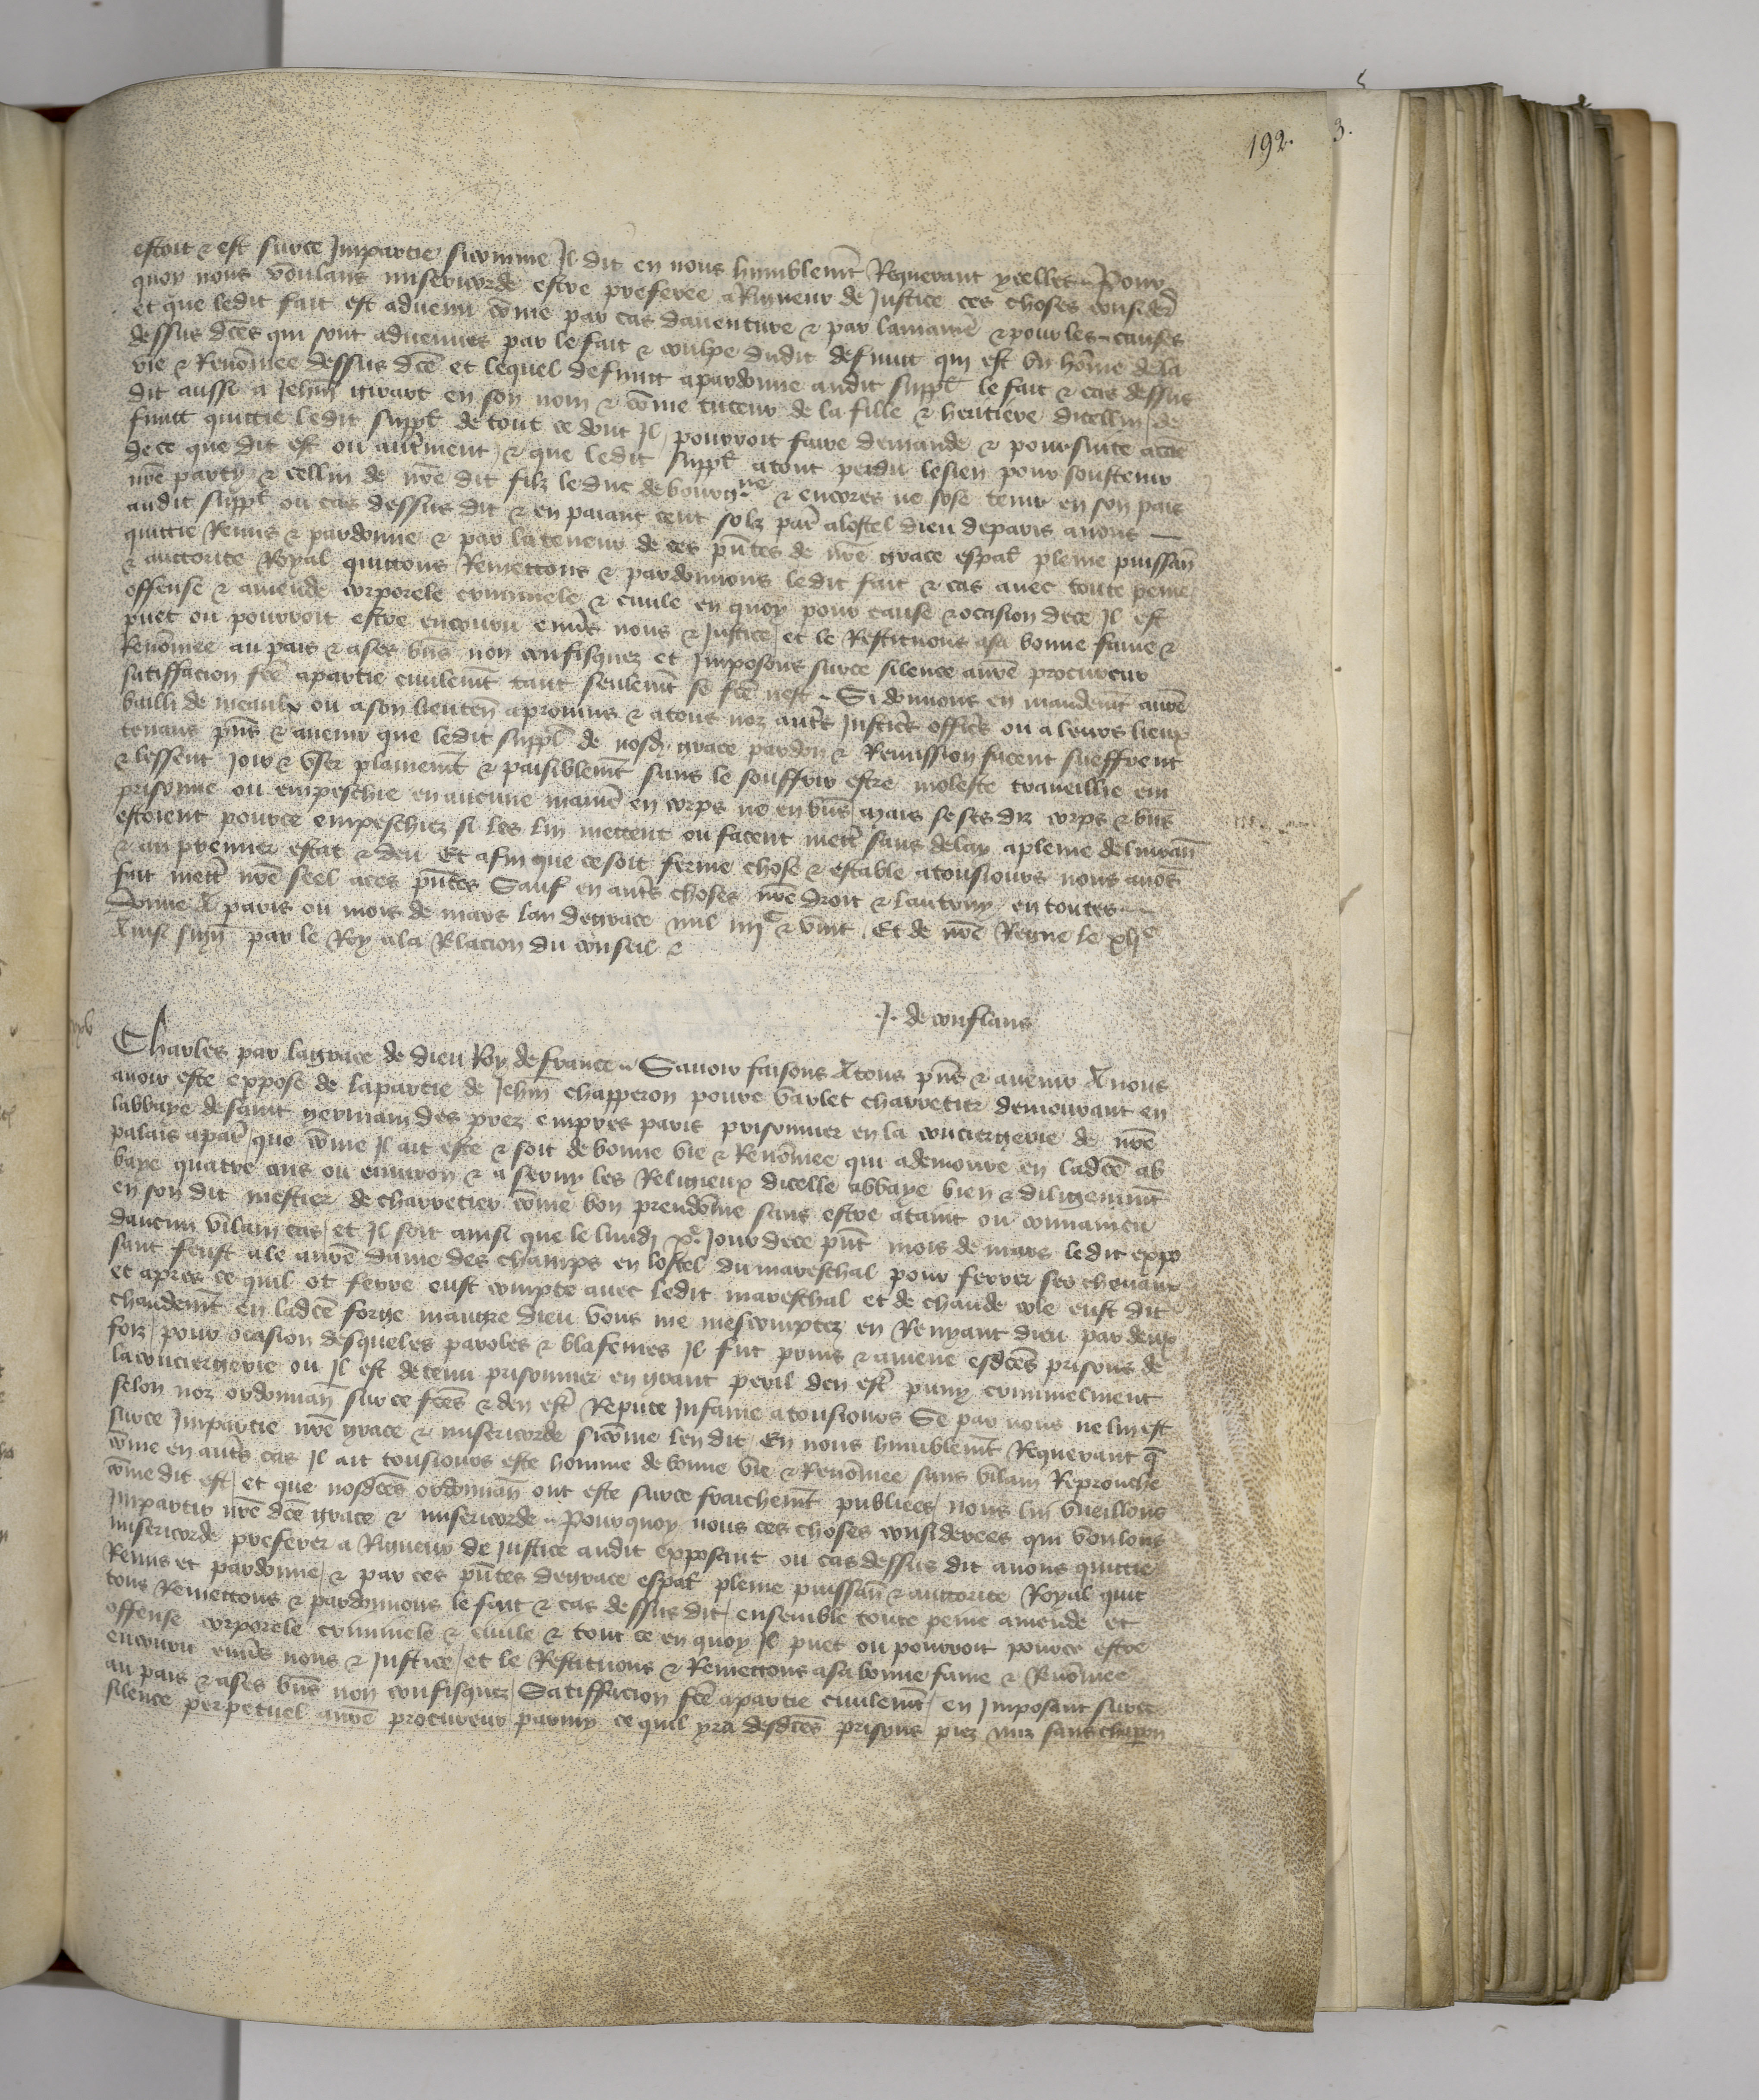 192. 3.
estoit & est surce Impartie sicomme Il dit en nous humblemt̄ Requerant ycelles Pour
quoy nous voulans misericorde estre preferee a Rigueur de Justice ces choses considere᷒
et que ledit fait est advenu cōme par cas daventure & par lamanie᷒ & pour les causes
dessus dc̄es qui sont advenues par le fait & coulpe dudit defunct qui est un hōme de la
vie & Renōmee dessus dc̄e et lequel defunct apardonne audit suppl̄ le fait & cas dessus
dit aussi a Jehan̄ girart en son nom & cōme tuteur de la fille & heritiere dicellui de
funct quittie ledit suppl̄ de tout ce dont Il pourroit faire demande & poursuite
de ce que dit est ou autr̄ment & que ledit suppl̄ atout perdu lesien pour soustenir
nr̄e party & cellui de nr̄e dit filz le duc de bourg.ne & encores ne sose tenir en son pais
audit suppl̄ ou cas dessus dit & en paiant cent solz par̄ alostel dieu deparis avons
quittie Remis & pardonne & par lateneur de ces pn̄tes de nr̄e grace espal̄ pleine puissan̄
& auctorite Royal quittons Remettons & pardonnons ledit fait & cas avec toute peine
offense & amende corporele criminele & civile en quoy pour cause & ocasion dece Il est
puet ou pourroit estre encouru envs̄ nous & Justice et le Restituons asa bonne fame &
Renōmee au pais & ases bn̄s non confisquez et Imposons surce silence anr̄e procureur
satiffacion fc̄e apartie civilemt̄ tant seulemt̄ se fc̄e nest Si donnons en mandemt̄ anr̄e
bailli de meaulx ou ason lieuten̄ aprouins & atous noz autr̄s Justic̄s offic̄s ou a leurs lieux
tenans pn̄s & avenir que ledit suppl̄ de nosd. grace pardon & Remission facent sueffrent
& lessent joir & user plainemt̄ & paisiblemt̄ sans le souffrir estre moleste traveillie em
prisonne ou empeschie en aucune manie᷒ en corps ne en bn̄s mais se ses diz corps & bn̄s
estoient pource empeschiez si les lui mettent ou facent mettr̄ sans delay apleine delivran̄
& au premier estat & deu Et afin que ce soit ferme chose & estable atousiours nous avōs
fait mettr̄ nr̄e seel aces pn̄tes Sauf en autr̄s choses nr̄e droit & lautruy en toutes
Donne A paris ou mois de mars lan degrace mil iiijC & vint Et de nr̄e Regne le xlje
Ainsi sign̄ par le Roy ala Relacion du conseil &
J. de conflans
Charles par lagrace de dieu Roy de france Savoir faisons Atous pn̄s & avenir A nous
avoir este expose de lapartie de Jehan̄ chapperon povre varlet charretier demourant en
labbaye de saint germain des prez empres paris prisonnier en la conciergerie de nr̄e
palais apar̄ que cōme Il ait este & soit de bonne vie & Renōmee qui ademoure en ladc̄e ab
baye quatre ans ou environ & a servy les Religieux dicelle abbaye bien & diligemmt̄
en son dit mestier de charretier cōme bon preudōme sans estre ataint ou convaincu
daucun vilain cas et Il soit ainsi que le lundi xe Jour dece pn̄t mois de mars ledit expo
sant feust ale anr̄e dame des champs en lostel du mareschal pour ferrer ses chevaux
et apres ce quil ot ferre eust compte avec ledit mareschal et de chaude cole eust dit
chaudemt̄ en ladc̄e forge maugre dieu vous me mescomptez en Renyant dieu par deux
foiz pour ocasion desqueles paroles & blafemes Il fut prins & amene esdc̄es prisons de
laconciergerie ou Il est detenu prisonnier en grant peril den estr̄ puny criminelment
selon noz ordonnan̄ sur ce fc̄es & den estr̄ Repute Infame atousiours Se par nous ne lui est
surce Impartie nr̄e grace & misericorde sicōme len dit En nous humblemt̄ Requerant q̄
cōme en autr̄s cas Il ait tousiours este homme de bonne vie & Renōmee sans vilain Reprouche
cōme dit est et que nosdc̄es ordonnan̄ ont este surce fraichemt̄ publiees nous lui vueillons
Impartir nr̄e dc̄e grace & misericorde Pourquoy nous ces choses considerees qui voulons
misericorde preferer a Rigueur de Justice audit exposant ou cas dessus dit avons quittie
Remis et pardonne & par ces pn̄tes degrace espal̄ pleine puissan̄ & auctorite Royal quit
tons Remettons & pardonnons le fait & cas dessus dit ensemble toute peine amende et
offense corporele criminele & civile & tout ce en quoy Il puet ou pourroit pource estre
encouru envs̄ nous & Justice et le Restituons & Remettons asa bonne fame & Renōmee
au pais & ases bn̄s non confisquez Satiffacion fc̄e apartie civilemt̄ en Imposant surce
silence perpetuel anr̄e procureur parmy ce quil yra desdc̄es prisons piez nuz sans chapon